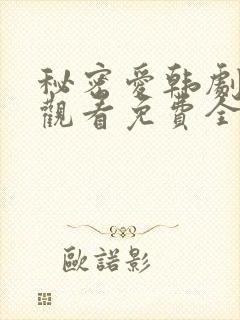 秘密愛韩劇
觀看免費全
歐諾影